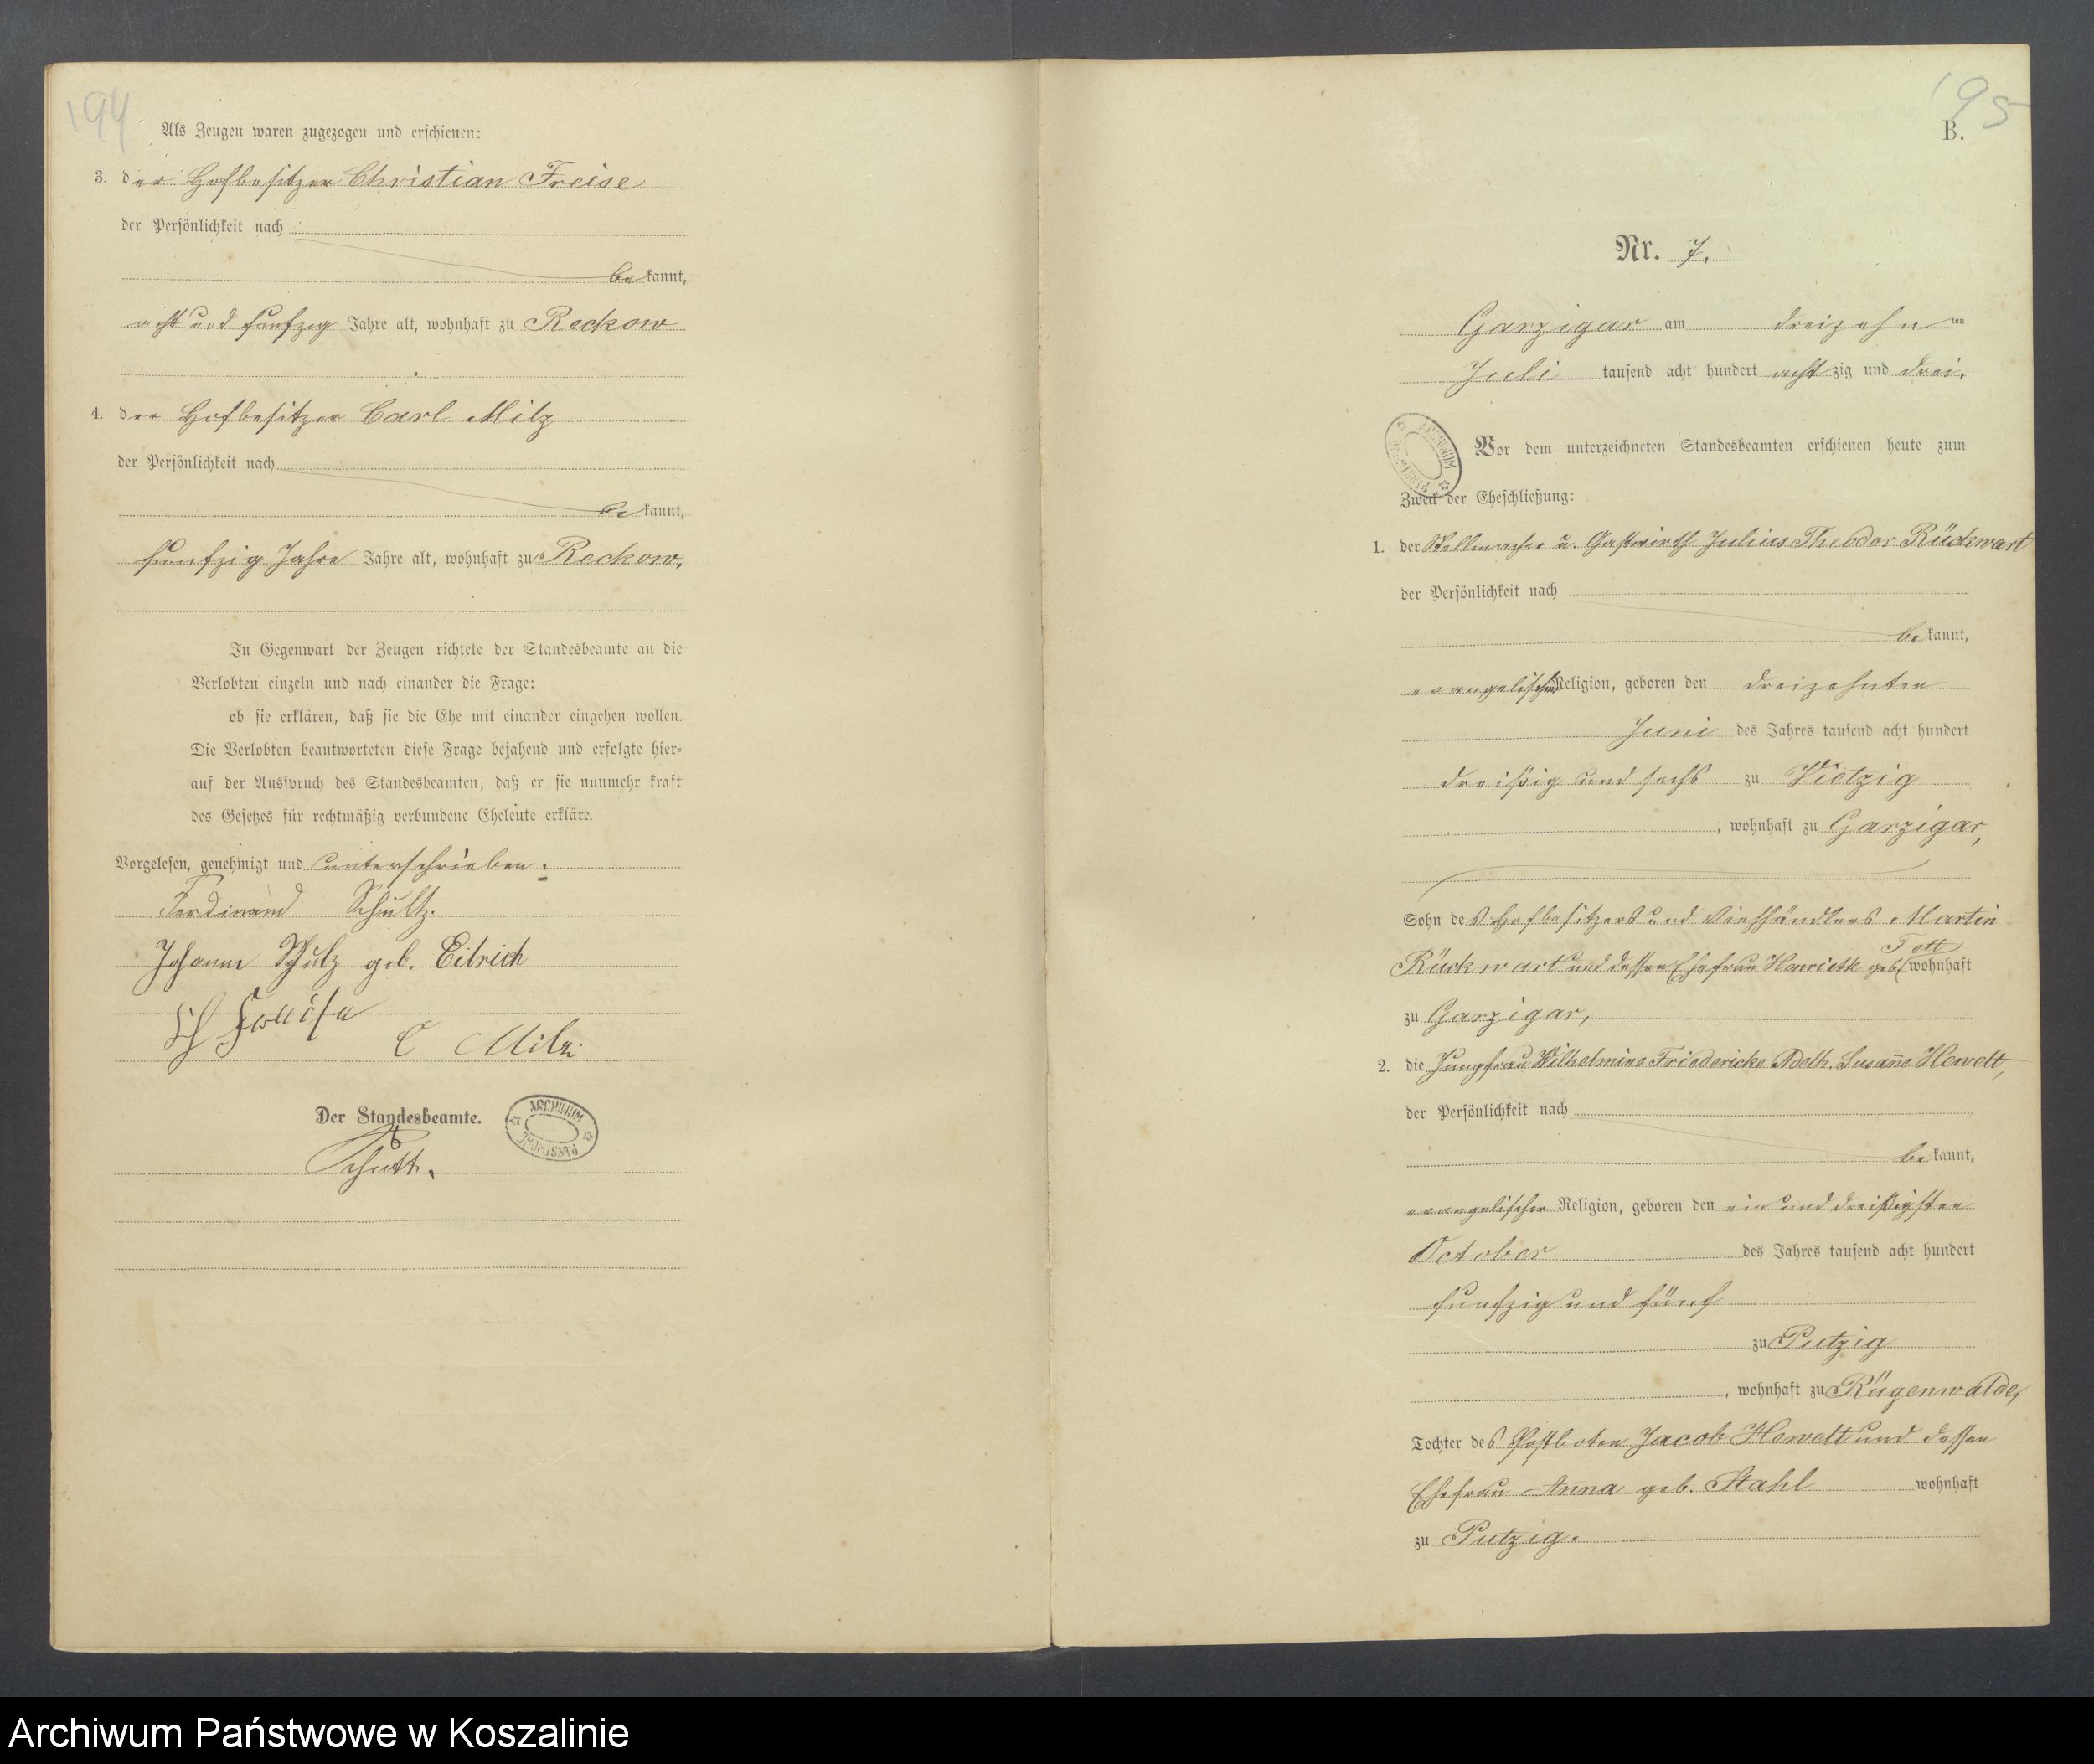 194
Als Zeugen waren zugezogen und erschienen:
3. der Hofbesitzer Christian Freise
der Persönlichkeit nach
bekannt,
acht und funfzig Jahre alt, wohnhaft zu Reckow
4. der Hofbesitzer Carl Milz
der Persönlichkeit nach
bekannt,
funfzig Jahre Jahre alt, wohnhaft zu Reckow,
In Gegenwart der Zeugen richtete der Standesbeamte an die
Verlobten einzeln und nach einander die Frage:
ob sie erklären, daß sie die Ehe mit einander eingehen wollen.
Die Verlobten beantworteten diese Frage bejahend und erfolgte hier-
auf der Ausspruch des Standesbeamten, daß er sie nunmehr kraft
des Gesetzes für rechtmäßig verbundene Eheleute erkläre.
Vorgelesen, genehmigt und unterschrieben.
Ferdinand Schultz.
Johanne Schulz geb. Eilrich
Ch Freise
C Milz
Der Standesbeamte.
ARCHIWUM PAŃSTWOWE
195
B.
Nr. 7.
Garzigar am dreizehnten
Juli tausend acht hundert achtzig und drei.
ARCHIWUM PAŃSTWOWE
Vor dem unterzeichneten Standesbeamten erschienen heute zum
Zweck der Eheschließung:
1. der Stellmacher u. Gastwirth Julius Theodor Rückwart
der Persönlichkeit nach
bekannt,
evangelischer Religion, geboren den dreizehnten
Juni des Jahres tausend acht hundert
dreißig und sechs zu Vietzig
, wohnhaft zu Garzigar,
Sohn des Hofbesitzers und Viehhändlers Martin
Rückwart und dessen Ehefrau Henriette geb. Fett wohnhaft
zu Garzigar,
2. die Jungfrau Wilhelmine Friedericke Adelh. Susañe Hewelt,
der Persönlichkeit nach
bekannt,
evangelischer Religion, geboren den ein und dreißigsten
October des Jahres tausend acht hundert
funfzig und fünf
zu Putzig
, wohnhaft zu Rügenwalde,
Tochter des Postboten Jacob Hewelt und dessen
Ehefrau Anna geb. Stahl wohnhaft
zu Putzig.
Archiwum Państwowe w Koszalinie